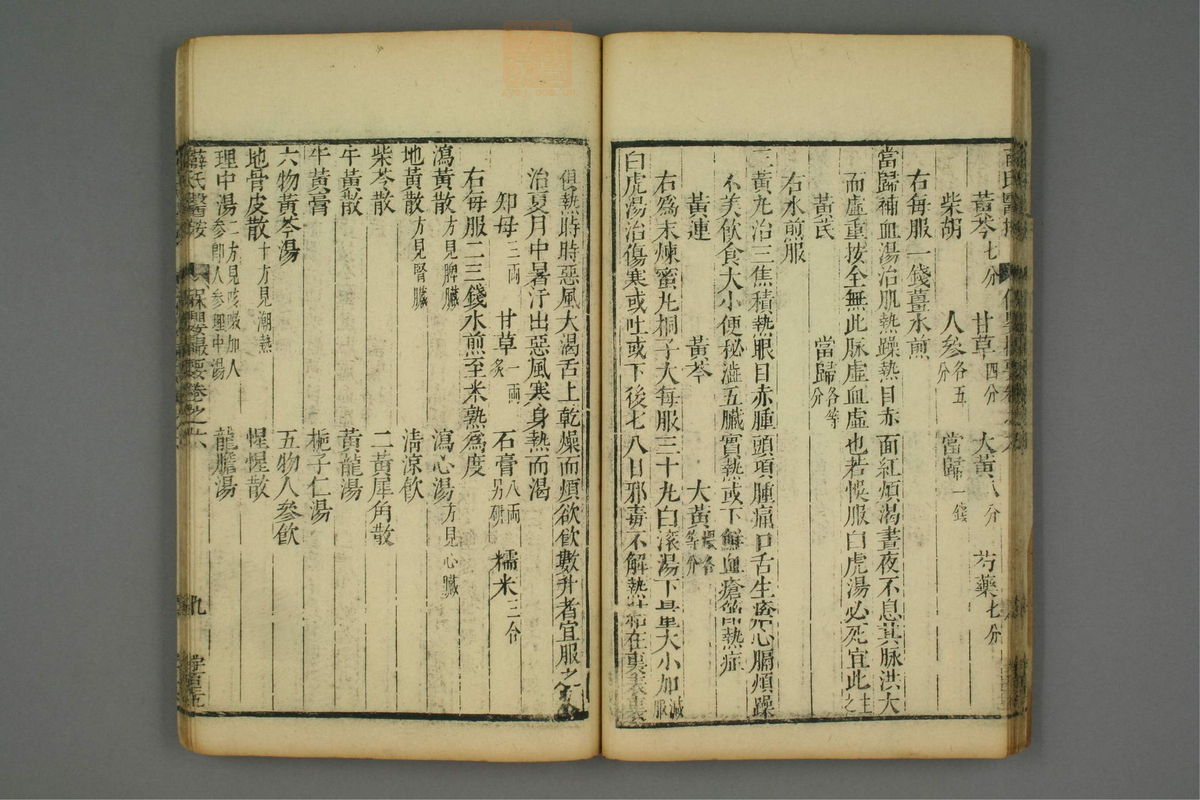 黃芩七分 甘草四分 大黃八分 芍藥七分
柴胡 人參各五分 當歸一錢
右每服一錢薑水煎
當歸補血湯治肌熱躁熱目赤面紅煩渴晝夜不息其脉洪大
而虛重按全無此脉虛血虛也若悞服白虎湯必死宜此主之
黃芪 當歸各等分
右水煎服
三黃丸治三焦積熱眼目赤腫頭項腫痛口舌生瘡心膈煩躁
不美飲食大小便秘澁五臟實熱或下鮮血瘡癤熱症
黃連 黃芩 大黃煨各等分
右爲末煉蜜丸桐子大每服三十丸白滾湯下量大小加減服
白虎湯治傷寒或吐或下後七八日邪毒不解熱結在裏表裏
俱熱時時惡風大渴舌上乾燥而煩欲飲數升者宜服之又
治夏月中暑汗出惡風寒身熱而渴
知母三兩 甘草一兩炙 石膏八兩另研 糯米三合
右每服二三錢水煎至米熟爲度
瀉黃散方見脾臟 瀉心湯方見心臟
地黃散方見腎臟 清涼飲
柴芩散 二黃犀角散
牛黃散 黃龍湯
牛黃膏 梔子仁湯
六物黃芩湯 五物人參飲
地骨皮散十方見潮熱 惺惺散
理中湯二方見咳嗽加人參卽人參理中湯 龍膽湯
薛氏醫按 保嬰撮要卷之六 九